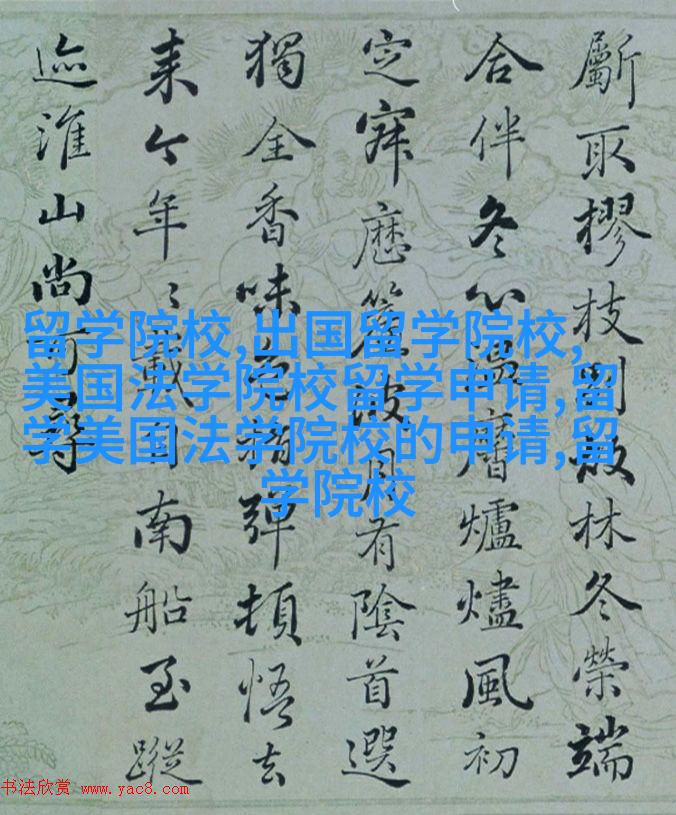 斸取樛枝別故林冬榮端
合伴冬心溫黁爐燼風初
定寂歷簷波月有陰首選
獨全香味色指彈頓悟去
来今年々戴日南船至蹤
迹淮山尚可尋
留学院校,出国留学院校,
美国法学院校留学申请,留
学美国法学院校的申请,留
学院校
书法欣赏 www.yac8.com